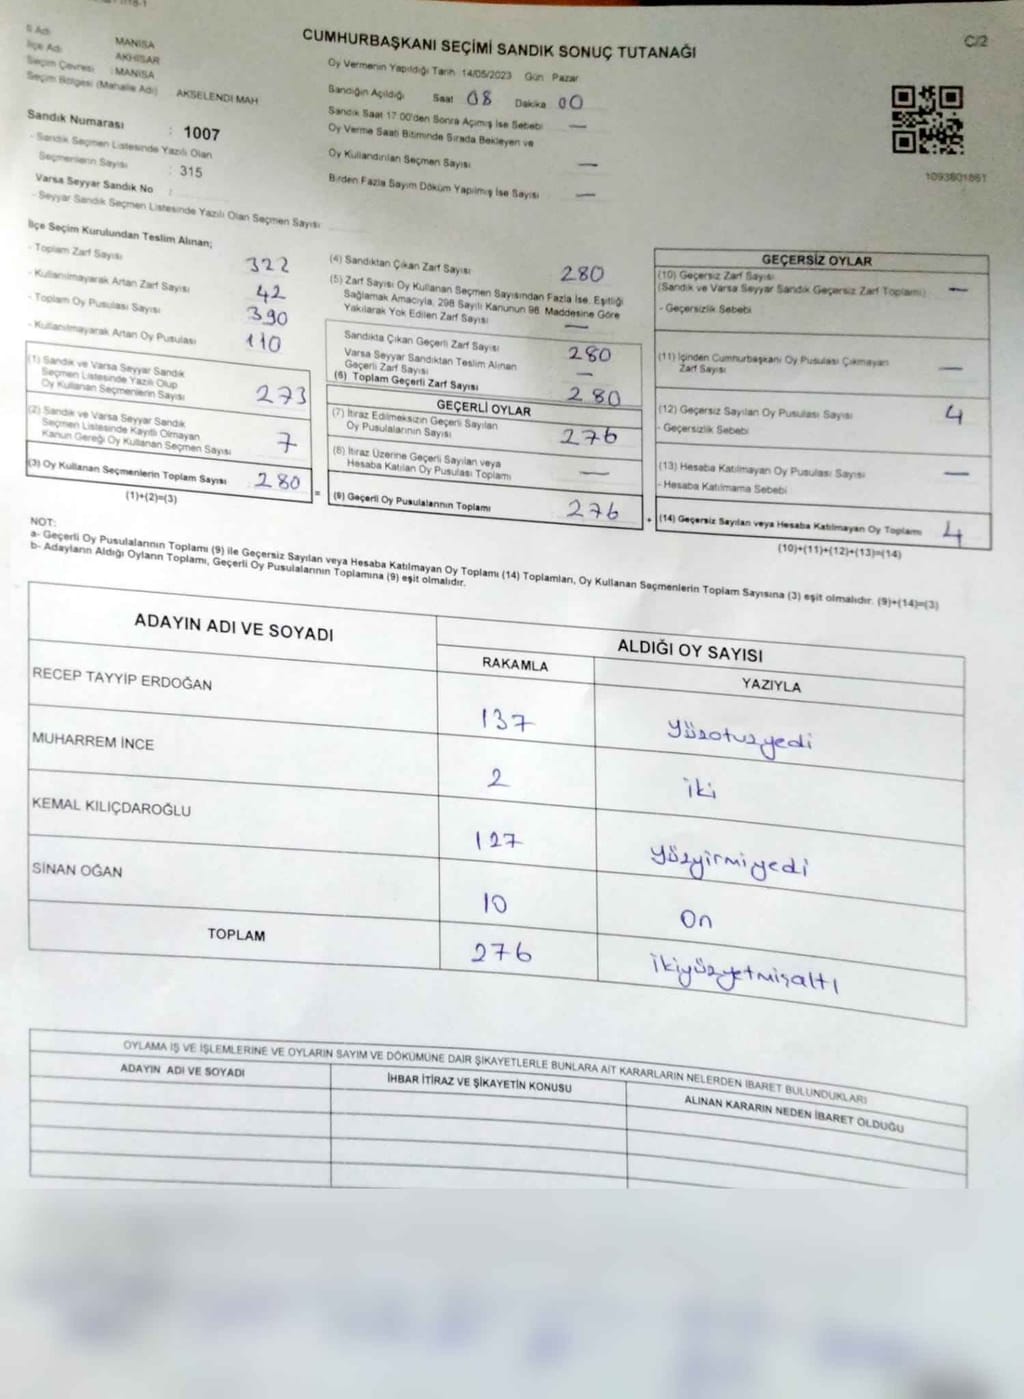 İl Adı MANİSA
İlçe Adı AKHİSAR
Seçim Çevresi : MANİSA
Seçim Bölgesi (Mahalle Adı) AKSELENDİ MAH
Sandık Numarası : 1007
- Sandık Seçmen Listesinde Yazılı Olan
Seçmenlerin Sayısı : 315
Varsa Seyyar Sandık No :
- Seyyar Sandık Seçmen Listesinde Yazılı Olan Seçmen Sayısı
CUMHURBAŞKANI SEÇİMİ SANDIK SONUÇ TUTANAĞI
C/2
Oy Vermenin Yapıldığı Tarih 14/05/2023 Gün Pazar
Sandığın Açıldığı Saat 08 Dakika 00
Sandık Saat 17.00'den Sonra Açımış İse Sebebi —
Oy Verme Saati Bitiminde Sırada Bekleyen ve
Oy Kullandırılan Seçmen Sayısı —
Birden Fazla Sayım Döküm Yapılmış İse Sayısı —
1093801861
İlçe Seçim Kurulundan Teslim Alınan;
- Toplam Zarf Sayısı 322
- Kullanılmayarak Artan Zarf Sayısı 42
- Toplam Oy Pusulası Sayısı 390
- Kullanılmayarak Artan Oy Pusulası 110
(1) Sandık ve Varsa Seyyar Sandık
Seçmen Listesinde Yazılı Olup
Oy Kullanan Seçmenlerin Sayısı 273
(2) Sandık ve Varsa Seyyar Sandık
Seçmen Listesinde Kayıtlı Olmayan
Kanun Gereği Oy Kullanan Seçmen Sayısı 7
(3) Oy Kullanan Seçmenlerin Toplam Sayısı 280
(1)+(2)=(3)
=
(4) Sandıktan Çıkan Zarf Sayısı 280
(5) Zarf Sayısı Oy Kullanan Seçmen Sayısından Fazla İse, Eşitliği
Sağlamak Amacıyla, 298 Sayılı Kanunun 98. Maddesine Göre
Yakılarak Yok Edilen Zarf Sayısı —
Sandıkta Çıkan Geçerli Zarf Sayısı 280
Varsa Seyyar Sandıktan Teslim Alınan
Geçerli Zarf Sayısı —
(6) Toplam Geçerli Zarf Sayısı 280
GEÇERLİ OYLAR
(7) İtiraz Edilmeksizin Geçerli Sayılan
Oy Pusulalarının Sayısı 276
(8) İtiraz Üzerine Geçerli Sayılan veya
Hesaba Katılan Oy Pusulası Toplamı —
(9) Geçerli Oy Pusulalarının Toplamı 276
+
GEÇERSİZ OYLAR
(10) Geçersiz Zarf Sayısı
(Sandık ve Varsa Seyyar Sandık Geçersiz Zarf Toplamı) —
- Geçersizlik Sebebi
(11) İçinden Cumhurbaşkanı Oy Pusulası Çıkmayan
Zarf Sayısı —
(12) Geçersiz Sayılan Oy Pusulası Sayısı 4
- Geçersizlik Sebebi
(13) Hesaba Katılmayan Oy Pusulası Sayısı —
- Hesaba Katılmama Sebebi
(14) Geçersiz Sayılan veya Hesaba Katılmayan Oy Toplamı 4
(10)+(11)+(12)+(13)=(14)
NOT:
a- Geçerli Oy Pusulalarının Toplamı (9) ile Geçersiz Sayılan veya Hesaba Katılmayan Oy Toplamı (14) Toplamları, Oy Kullanan Seçmenlerin Toplam Sayısına (3) eşit olmalıdır. (9)+(14)=(3)
b- Adayların Aldığı Oyların Toplamı, Geçerli Oy Pusulalarının Toplamına (9) eşit olmalıdır.
ADAYIN ADI VE SOYADI ALDIĞI OY SAYISI
RAKAMLA YAZIYLA
RECEP TAYYİP ERDOĞAN 137 yüzotuzyedi
MUHARREM İNCE 2 iki
KEMAL KILIÇDAROĞLU 127 yüzyirmiyedi
SİNAN OĞAN 10 On
TOPLAM 276 ikiyüzyetmişaltı
OYLAMA İŞ VE İŞLEMLERİNE VE OYLARIN SAYIM VE DÖKÜMÜNE DAİR ŞİKAYETLERLE BUNLARA AİT KARARLARIN NELERDEN İBARET BULUNDUKLARI
ADAYIN ADI VE SOYADI İHBAR İTİRAZ VE ŞİKAYETİN KONUSU ALINAN KARARIN NEDEN İBARET OLDUĞU